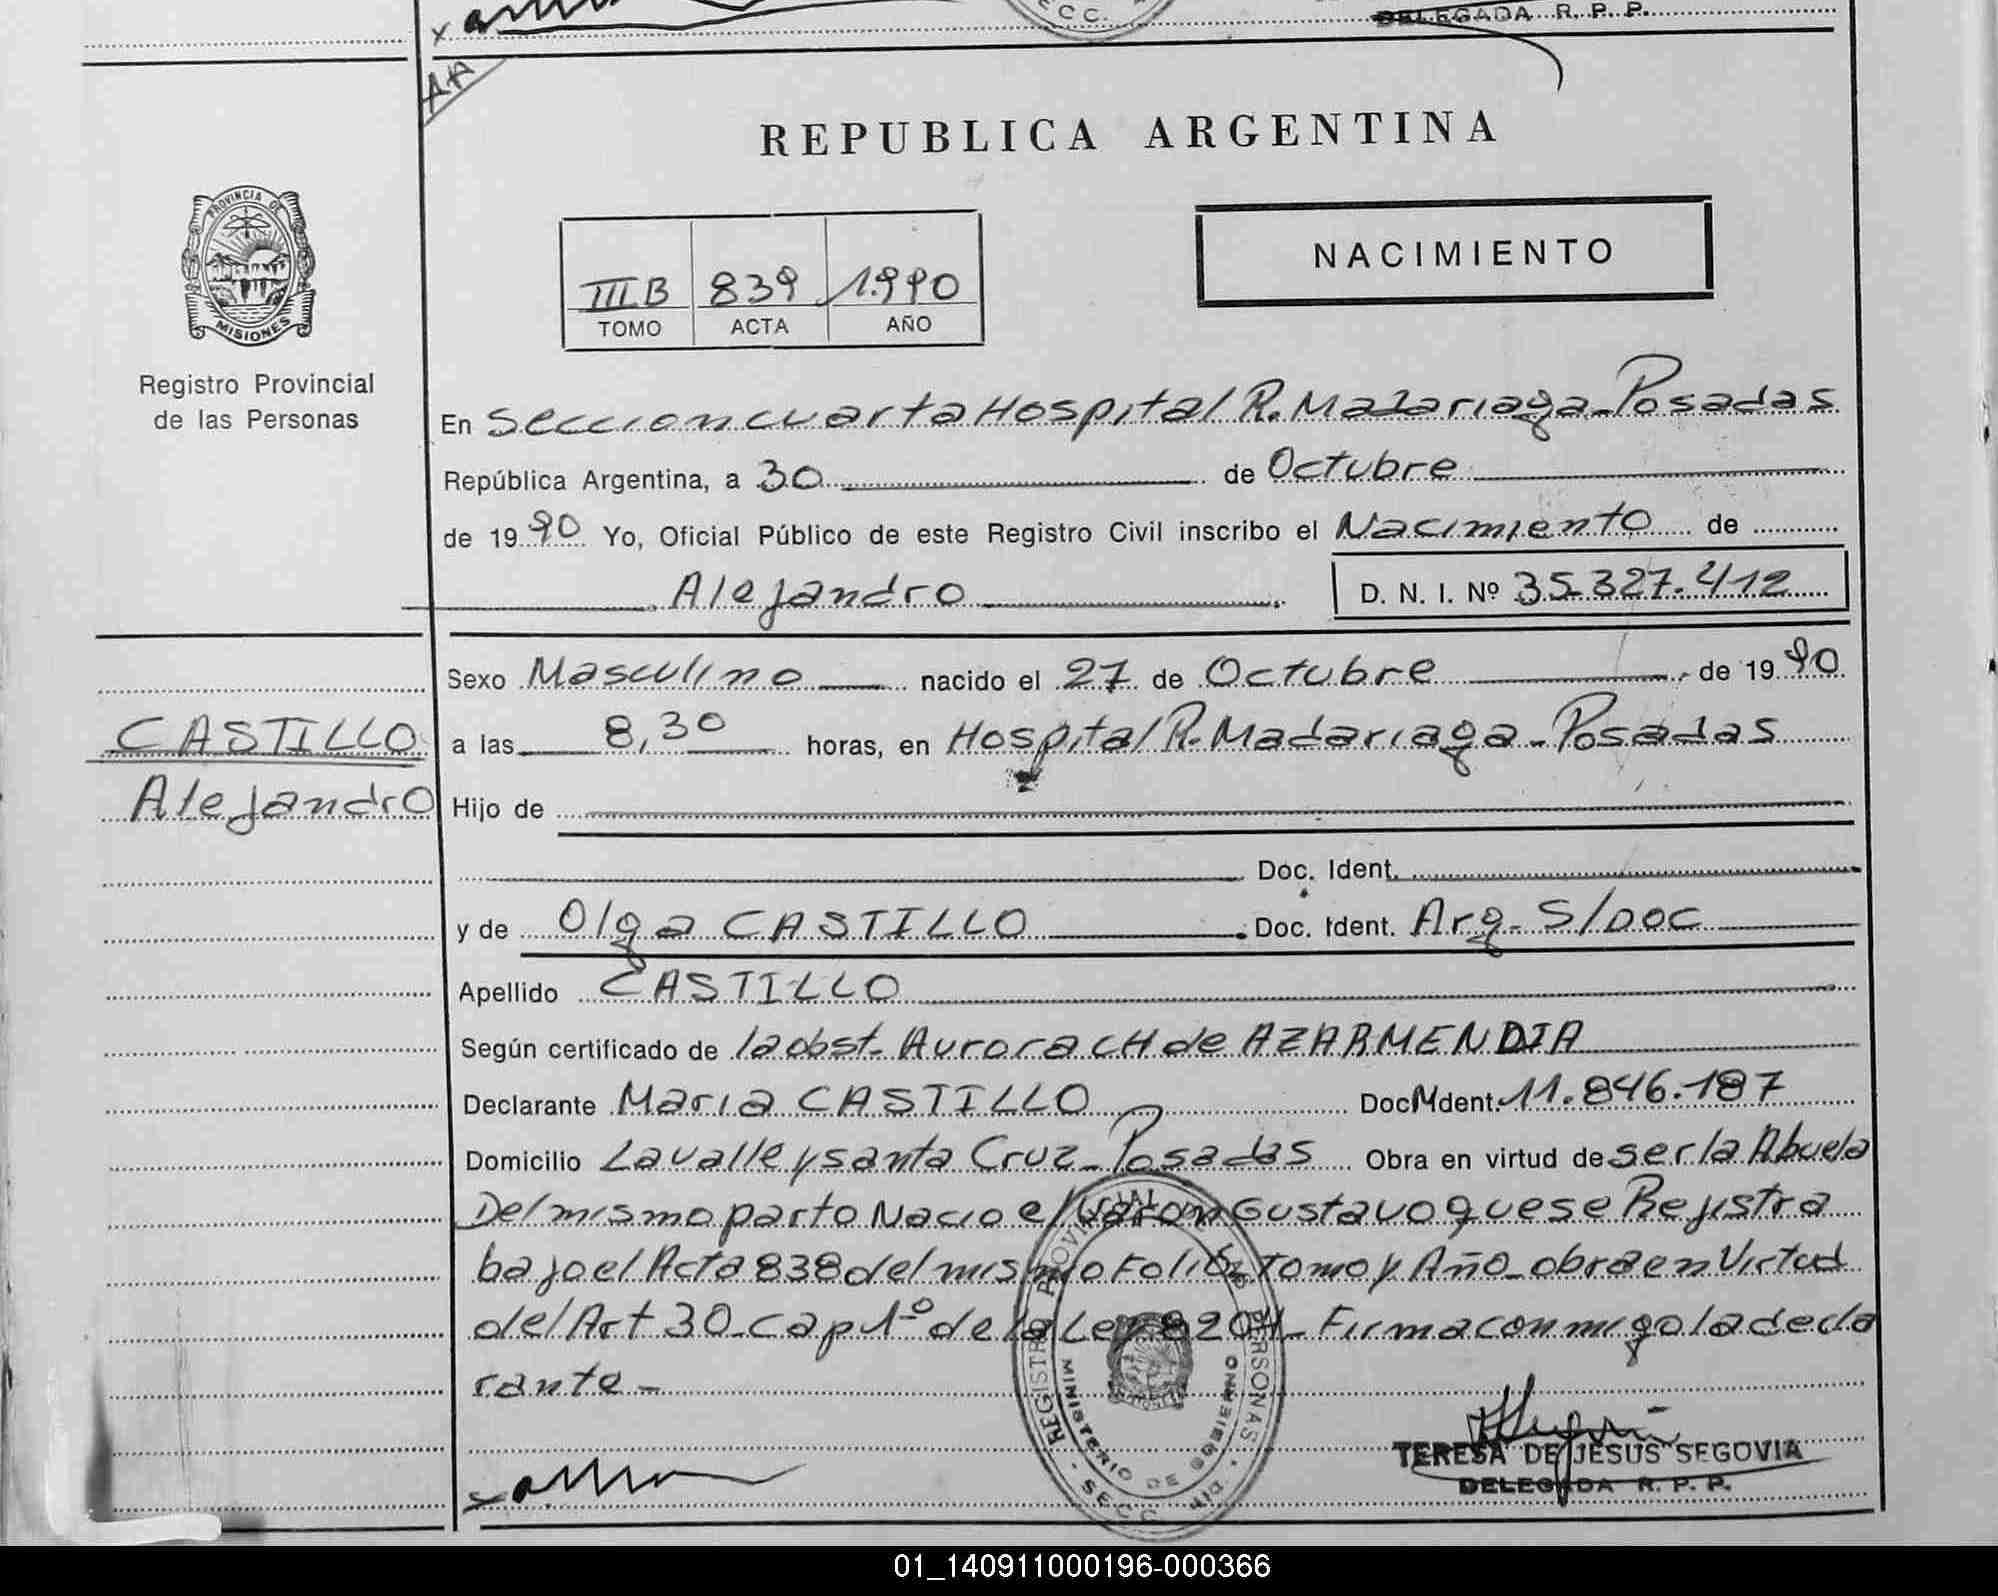 ECC.
DELEGADA R. P. P.
AA
REPUBLICA ARGENTINA
PROVINCIA DE
MISIONES
NACIMIENTO
III B 839 1.990
TOMO ACTA AÑO
Registro Provincial
de las Personas
En Seccion cuarta Hospital R. Madariaga - Posadas
República Argentina, a 30 de Octubre
de 1990 Yo, Oficial Público de este Registro Civil inscribo el Nacimiento de
Alejandro D. N. I. Nº 35.327.412
Sexo Masculino nacido el 27 de Octubre de 1990
CASTILLO
Alejandro
a las 8,30 horas, en Hospital R. Madariaga - Posadas
Hijo de
Doc. Ident.
y de Olga CASTILLO Doc. Ident. Arg. S/DOC
Apellido CASTILLO
Según certificado de la obst. Aurora CH de AZARMENDIA
Declarante Maria CASTILLO Doc. Ident. 11.846.187
Domicilio Lavalle y santa Cruz - Posadas Obra en virtud de ser la Abuela
Del mismo parto Nacio el varon Gustavo que se Rejistra
bajo el Acta 838 del mismo Folio, Tomo y Año - obra en Virtud
del Art 30 - Cap 1º de la Ley 8204 - Firma conmigo la decla
rante -
REGISTRO PROVINCIAL DE LAS PERSONAS
MINISTERIO DE GOBIERNO
SECC.
TERESA DE JESUS SEGOVIA
DELEGADA R. P. P.
01_140911000196-000366